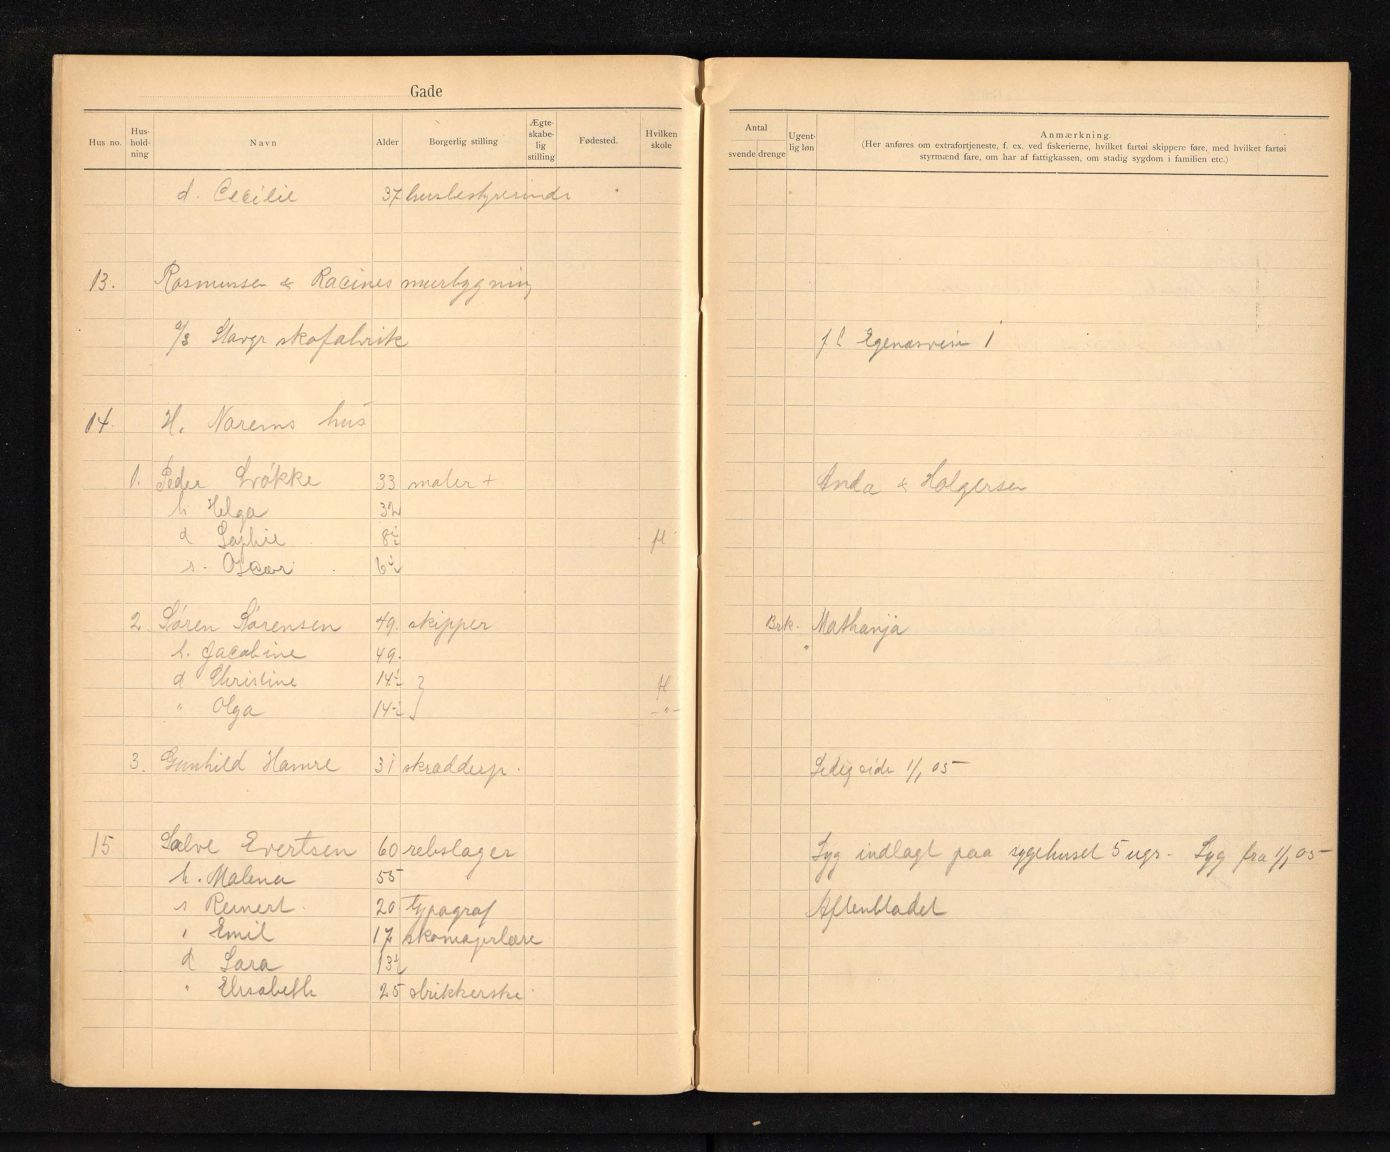 Gade
Hus no. Hus-hold-ning Navn Alder Borgerlig stilling Ægte-skabe-lig stilling Fødested. Hvilken skole
Antal svende drenge Ugent-lig løn Anmærkning.
(Her anføres om extrafortjeneste, f. ex. ved fiskerierne, hvilket fartøi skippere føre, med hvilket fartøi
styrmænd fare, om har af fattigkassen, om stadig sygdom i familien etc.)
d. Cecilie 37 husbestyrerinde
13. Rasmussen & Racines murbygning
a/s Stavgr skofabrik Egenæsvein 1
14. H. Narems hus
1. Peder Løkke 33 maler + Anda & Holgersen
h Helga 32
d Sophie 8½ H
s. Oscar 6½
2. Søren Sørensen 49. skipper Brk. Mathanja
h. Jacobine 49. "
d Christine 14½ } H
" Olga 14½ -"-
3. Gunhild Hamre 31 skrædderp. Ledig siden 1/1 05
15 Salve Evertsen 60 rebslager Syg indlagt paa sygehuset 5 ugr. Syg fra 1/1 05
h. Malena 55
s Reinert. 20 typograf Aftenbladet
" Emil 17 skomagerlære
d Sara 13½
" Elisabeth 25 strikkerske